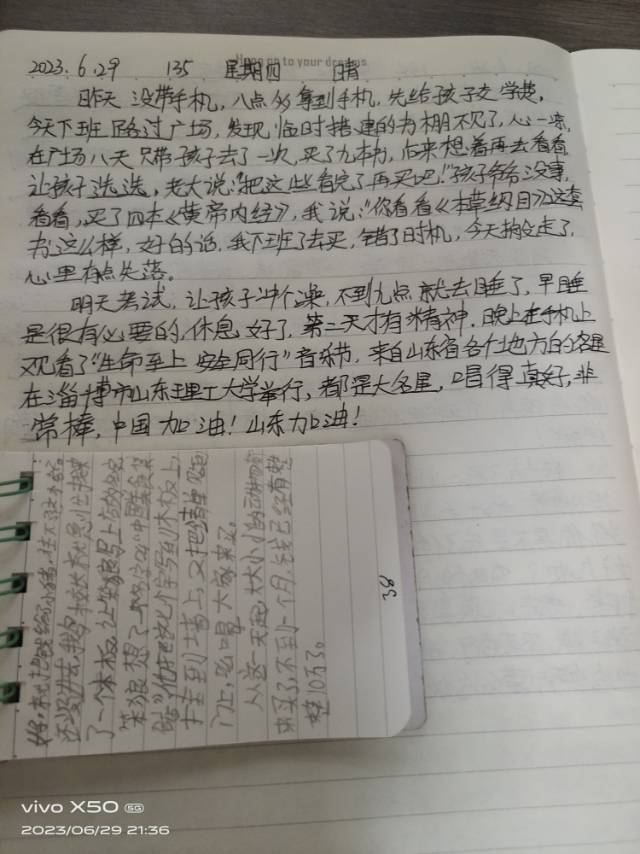 2023.6.29 135 星期四 晴
昨天没带手机，八点多拿到手机，先给孩子交学费，
今天下班路过广场，发现临时搭建的书棚不见了，心一凉，
在广场八天只带孩子去了一次，买了九本书，后来想着再去看看
让孩子选选，老大说：“把这些看完了再买吧。”孩子爷爷没事，
看看，买了四本《黄帝内经》，我说：“你看看《本草纲目》这套
书这么样，好的话，我下班了去买，错了时机，今天搬走了，
心里有点失落。
明天考试，让孩子冲个澡，不到九点就去睡了，早睡
是很有必要的，休息好了，第二天才有精神，晚上在手机上
观看了“生命至上 安全同行”音乐节，来自山东省各个地方的名星
在淄博市山东理工大学举行，都是大名星，唱得真好，非
常棒，中国加油！山东加油！
了一个木板，让笨狼写上
笨狼想了
十去到墙上，又把
门上，吆喝大家来买。
从这一天起，大大小小的动物
来买了，不到一个月，钱已经有整
整10万了。
38
vivo X50 5G
2023/06/29 21:36